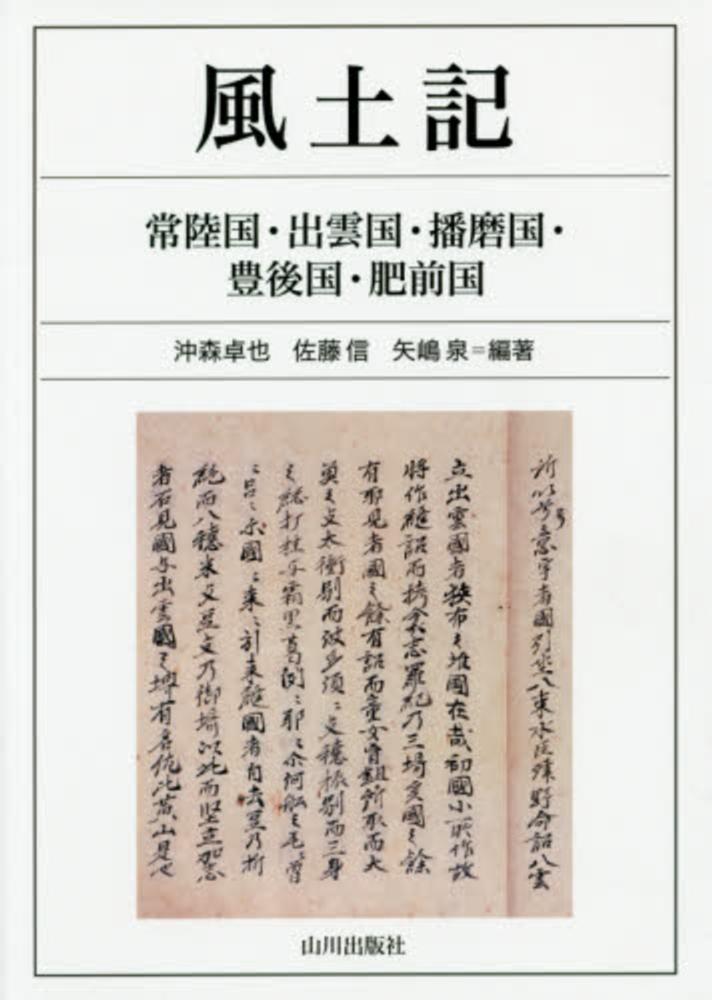 風土記
常陸国・出雲国・播磨国・
豊後国・肥前国
沖森卓也 佐藤信 矢嶋泉=編著
所以号意宇者國引坐八束水臣津野命詔八雲
立出雲國者狭布之堆國在哉初國小所作故
将作縫詔而栲衾志羅紀乃三埼矣國之餘
有耶見者國之餘有詔而童女胷鉏所取而大
魚之支太衝別而波多須々支穂振別而三身
之綱打挂而霜黒葛々耶々尓河船之毛々曽
々呂々尓國々来々引来縫國者自去豆乃折
絶而八穂米支豆支乃御埼以此而堅立加志
者石見國与出雲國之堺有名佐比賣山是也
山川出版社